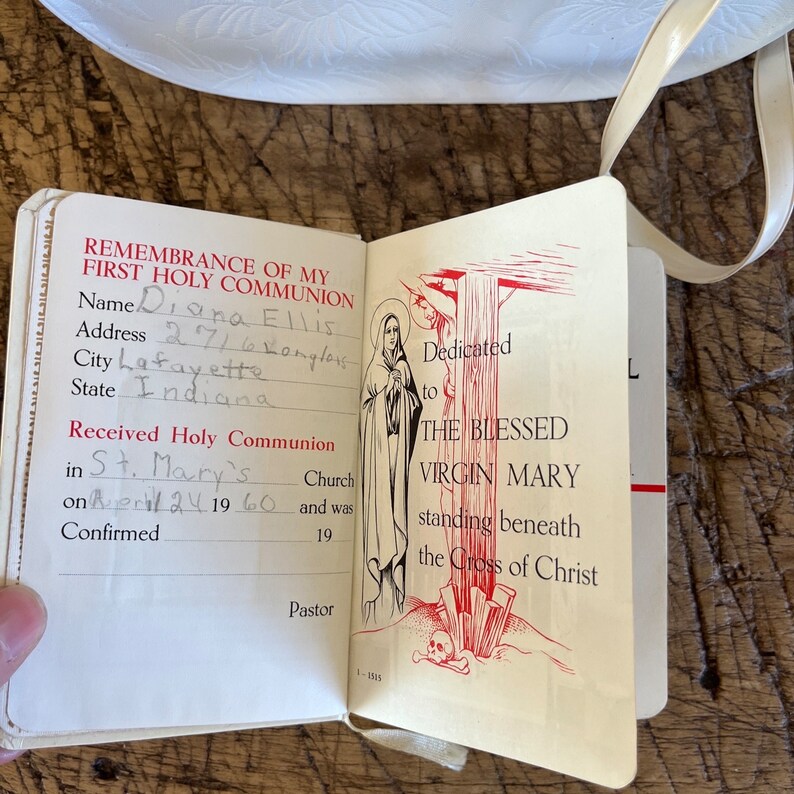 REMEMBRANCE OF MY
FIRST HOLY COMMUNION
Name Diana Ellis
Address 2716 Longlois
City Lafayette
State Indiana
Received Holy Communion
in St. Mary's Church
on April 24 1960 and was
Confirmed 19
Pastor
Dedicated
to
THE BLESSED
VIRGIN MARY
standing beneath
the Cross of Christ
1 – 1515
L